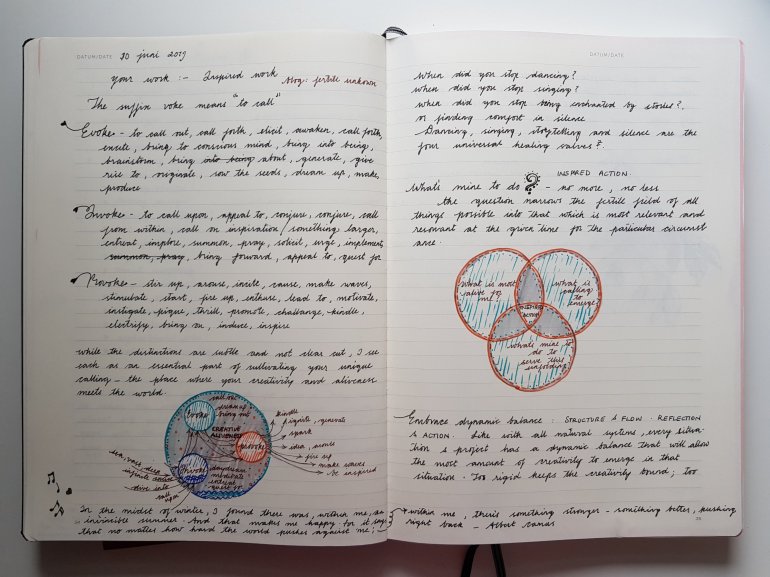 DATUM/DATE 30 juni 2019
your work :- Inspired work blog: fertile unknown
The suffix voke means "to call"
Evoke - to call out, call forth, elicit, awaken, call forth,
incite, bring to conscious mind, bring into being,
brainstorm, bring into being about, generate, give
rise to, originate, sow the seeds, dream up, make,
produce
Invoke - to call upon, appeal to, conjure, conjure, call
from within, call on inspiration/something larger,
entreat, implore, summon, pray, solicit, urge, implement,
summon, pray, bring forward, appeal to, quest for
Provoke - stir up, arouse, incite, cause, make waves,
stimulate, start, fire up, enthuse, lead to, motivate,
instigate, pique, thrill, promote, challange, kindle,
electrify, bring on, induce, inspire
while the distinctions are subtle and not clear cut, I see
each as an essential part of cultivating your unique
calling - the place where your creativity and aliveness
meets the world.
call out
dream up
bring out
Evoke
CREATIVE
ALIVENESS
Provoke
Invoke
daydream
meditate
entreat
quest for
kindle
ignite, generate
spark
idea, arouse
fire up
make waves
be inspired
dive into
call upon
In the midst of winter, I found there was, within me, an
invincible summer. And that makes me happy. For it says
that no matter how hard the world pushes against me,
DATUM/DATE
When did you stop dancing?
when did you stop singing?
when did you stop being enchanted by stories?,
or finding comfort in silence
Dancing, singing, storytelling and silence are the
four universal healing salves?.
INSPIRED ACTION
What's mine to do ? - no more, no less
the question narrows the fertile field of all
things possible into that which is most relevant and
resonant at the given time for the particular circumst
ance.
What is most
alive for
me?
what is
calling
to
emerge?
INSPIRED
ACTION
whats mine to
do to
serve this
unfolding?
Embrace dynamic balance : STRUCTURE & FLOW · REFLECTION
& ACTION. Like with all natural systems, every situa-
tion & project has a dynamic balance that will allow
the most amount of creativity to emerge in that
situation. Too rigid keeps the creativity bound; too
within me, there's something stronger - something better, pushing
right back - Albert Camus